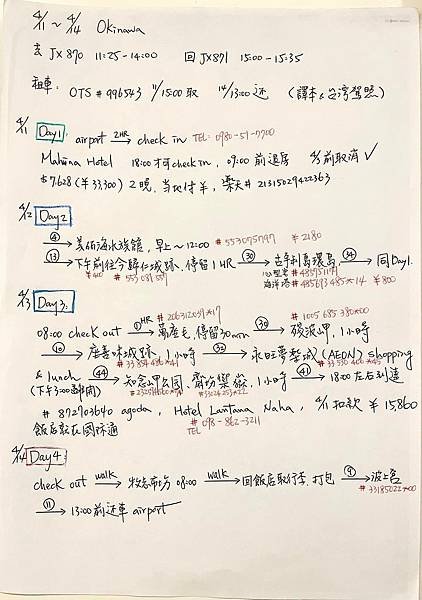 4/11 ~ 4/14 Okinawa
去 JX 870 11:25-14:00 回 JX871 15:00-15:35
租車: OTS # 996543 11/15:00 取 14/13:00 还 (譯本&台灣駕照)
4/11 Day1: airport 2HR → check in TEL: 0980-51-7700
Mahaina Hotel 18:00才可check in, 09:00 前退房 4/3前取消 ✓
$7628 (¥33,300) 2晚, 当地付¥, 樂天# 21315029422363
4/12 Day2
④ → 美ら海水族館, 早上~12:00 # 553075797 ¥ 2180
⑬ → 下午前往今歸仁城跡, 停留1HR ㉚ → 古宇利島環島, ㉞ → 同Day1.
¥600 # 553 081
海洋塔 # 485693 485*14 ¥800
4/13 Day3.
08:00 check out 1HR → 萬座毛, 停留30min # 206312039*17 ㊴ → 殘波岬, 1小時 # 1005 685 380*00
⑩ → 座喜味城跡, 1小時 # 33 854 486*41 ㉜ → 永旺夢樂城 (AEON) shopping # 33 530 406*45
& lunch ㊹ → 知念岬公園, 齋場御嶽, 1小時 # 33024253*22 ㊶ → 18:00左右到達
(下午3:00離開)
# 892703640 agoda, Hotel Lantana Naha, 4/1 扣款 ¥ 15,860
飯店就在國際通 TEL # 098-862-3211
4/14 Day4.
check out walk → 牧志市場 08:00 walk → 回飯店取行李, 打包 ⑨ → 波上宮 # 33185022*00
⑪ → 13:00前还車 airport